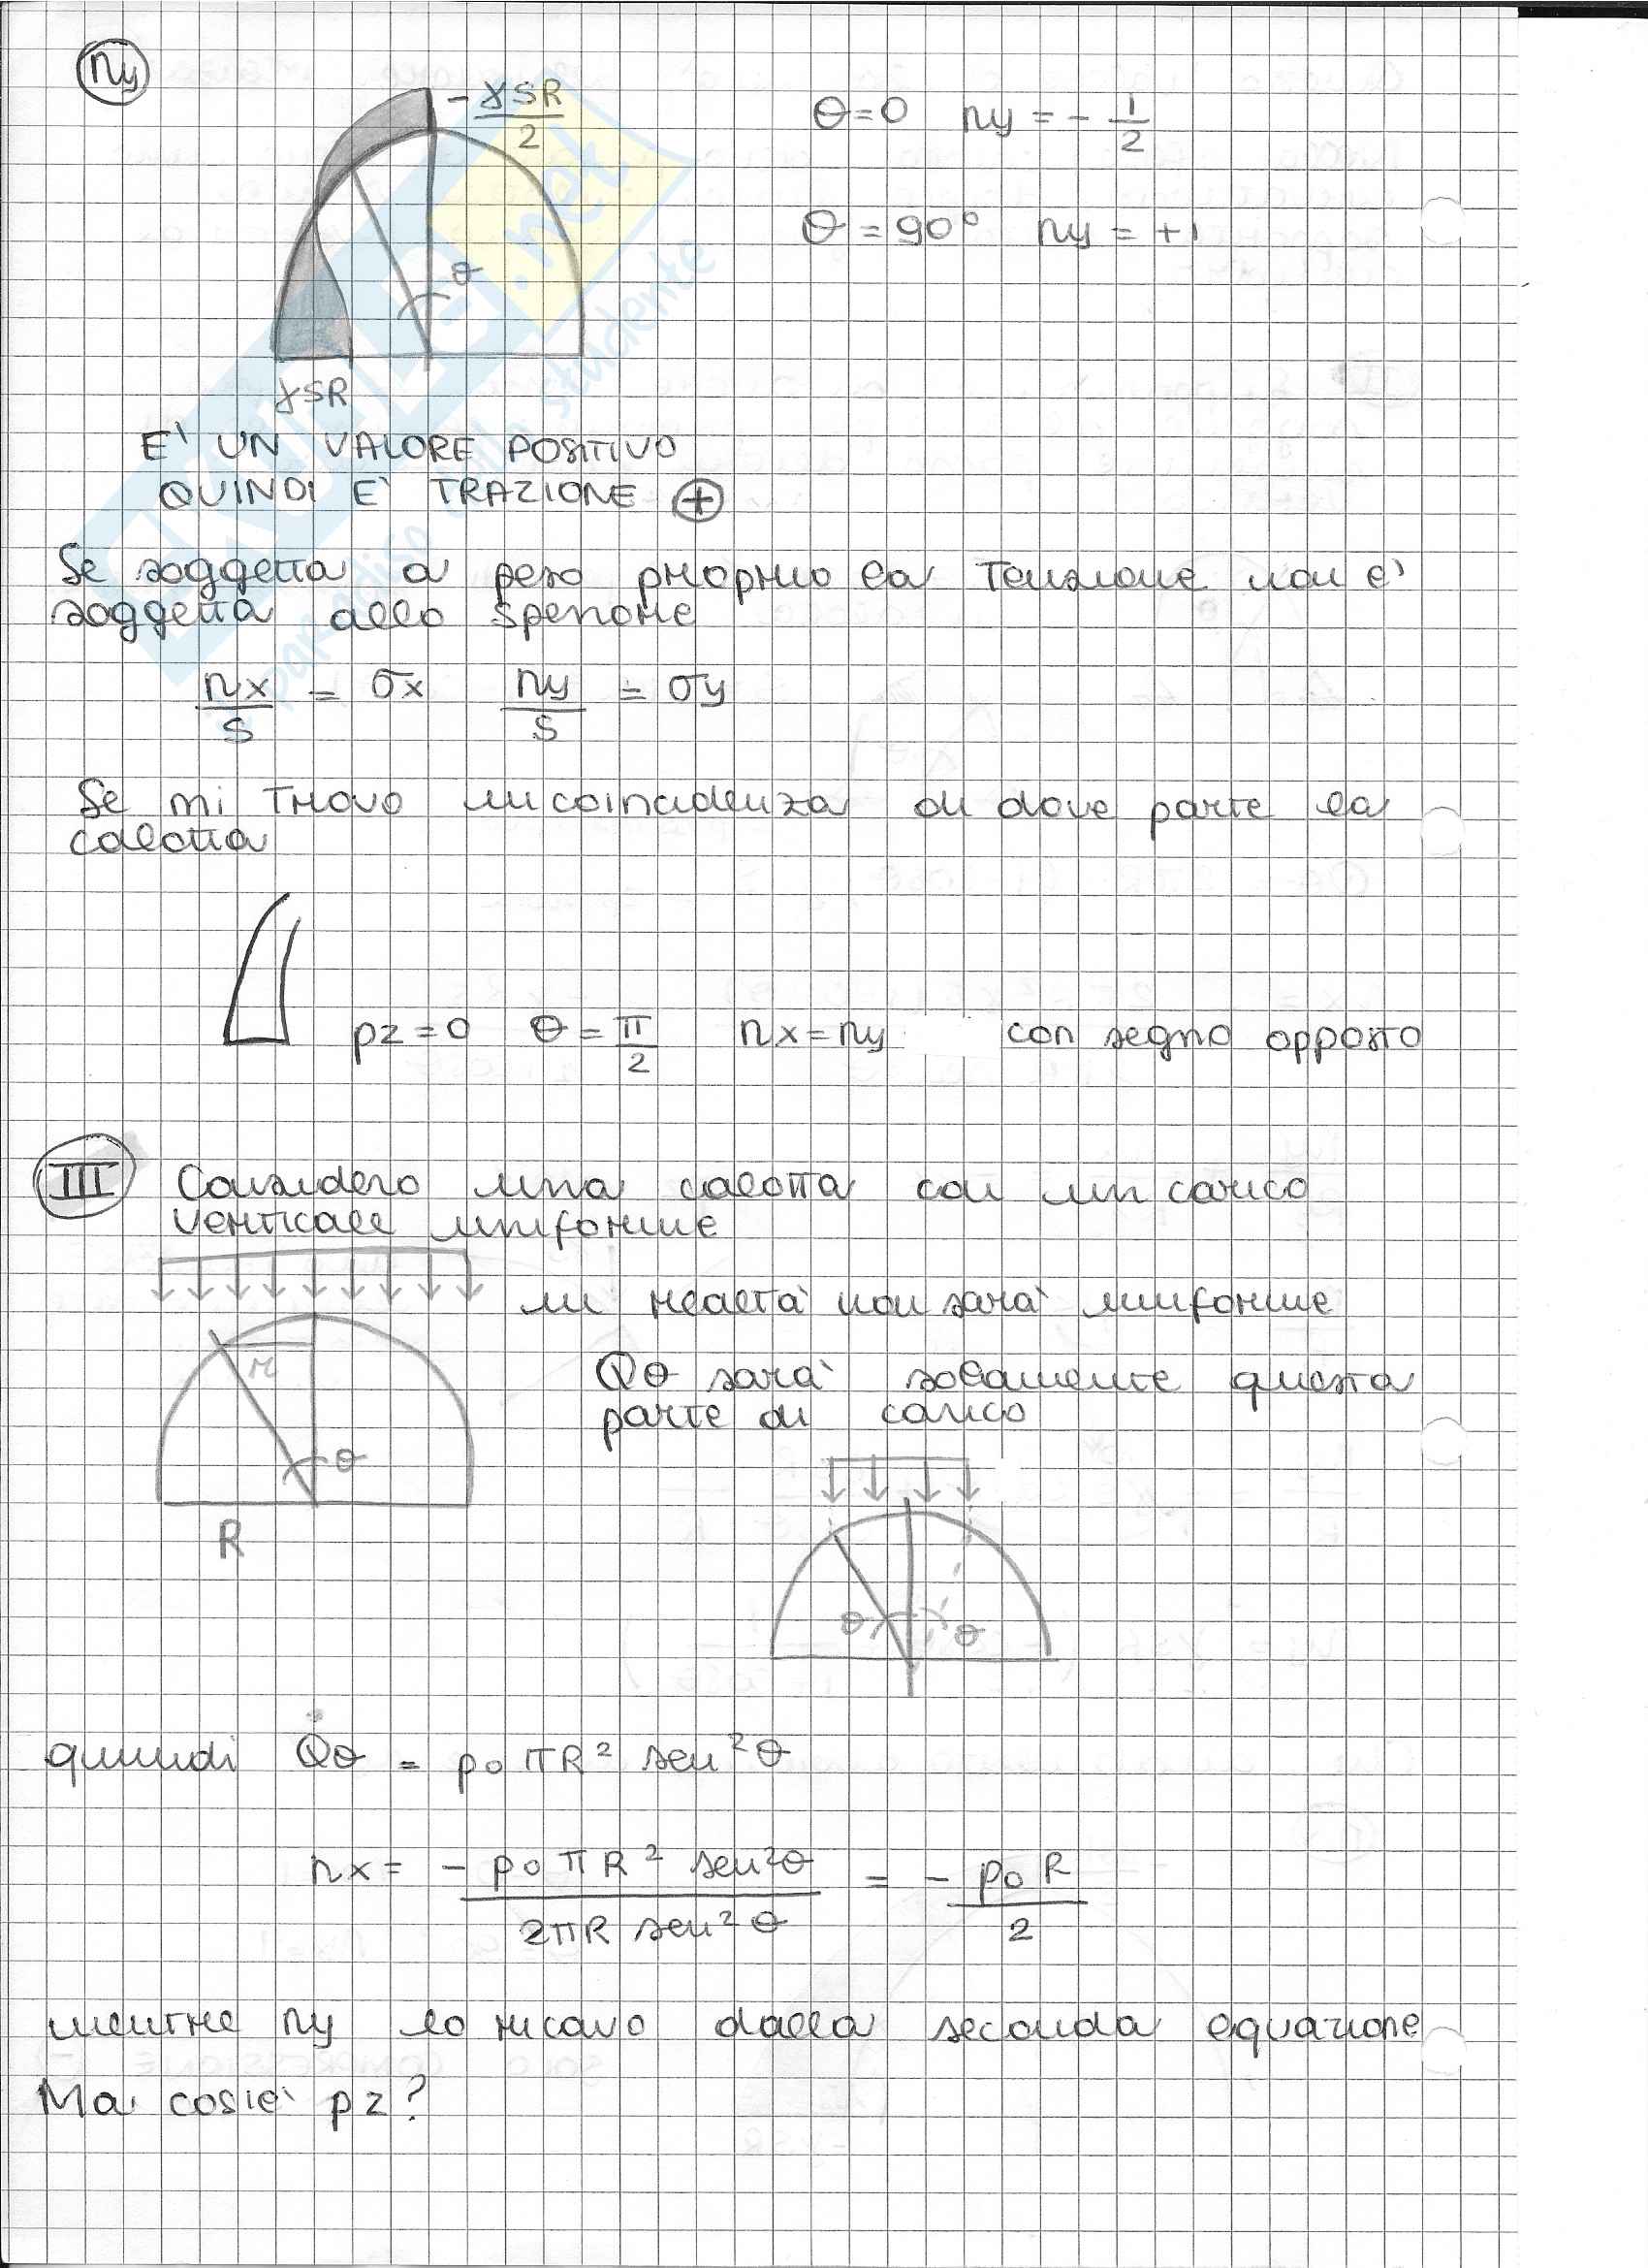 ny
-γSR/2
θ=0 ny = -1/2
θ = 90° ny = +1
θ
γSR
E' UN VALORE POSITIVO
QUINDI E' TRAZIONE ⊕
Se soggetta a peso proprio la tensione non e'
soggetta allo spessore
nx/S = σx ny/S = σy
Se mi trovo in coincidenza di dove parte la
calotta
pz = 0 θ = π/2 nx = ny con segno opposto
III Considero una calotta con un carico
verticale uniforme
in realtà non sarà uniforme
r
Qθ sarà solamente questa
parte di carico
θ
R
θ θ
quindi Qθ = po πR² sen²θ
nx = -po πR² sen²θ / 2πR sen²θ = - po R / 2
mentre ny lo ricavo dalla seconda equazione
Ma cos'è pz?